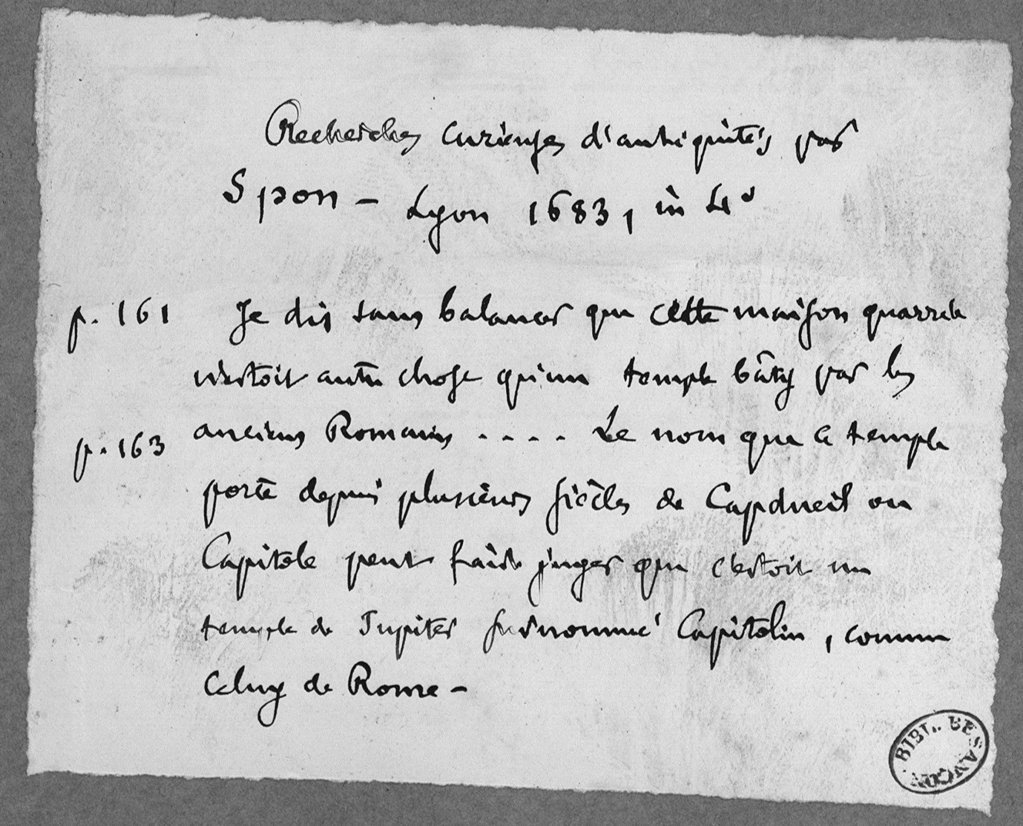 Recherches curieuses d'antiquités par
Spon – Lyon 1683, in 4°
p. 161 Je dis sans balancer que cette maison quarrée
n'estoit autre chose qu'un temple bâty par les
p. 163 anciens Romains . . . . Le nom que ce temple
porte depuis plusieurs siècles de Capdueil ou
Capitole peut faire juger que c'estoit un
temple de Jupiter surnommé Capitolin, comme
celuy de Rome –
BIBL. BESANÇON